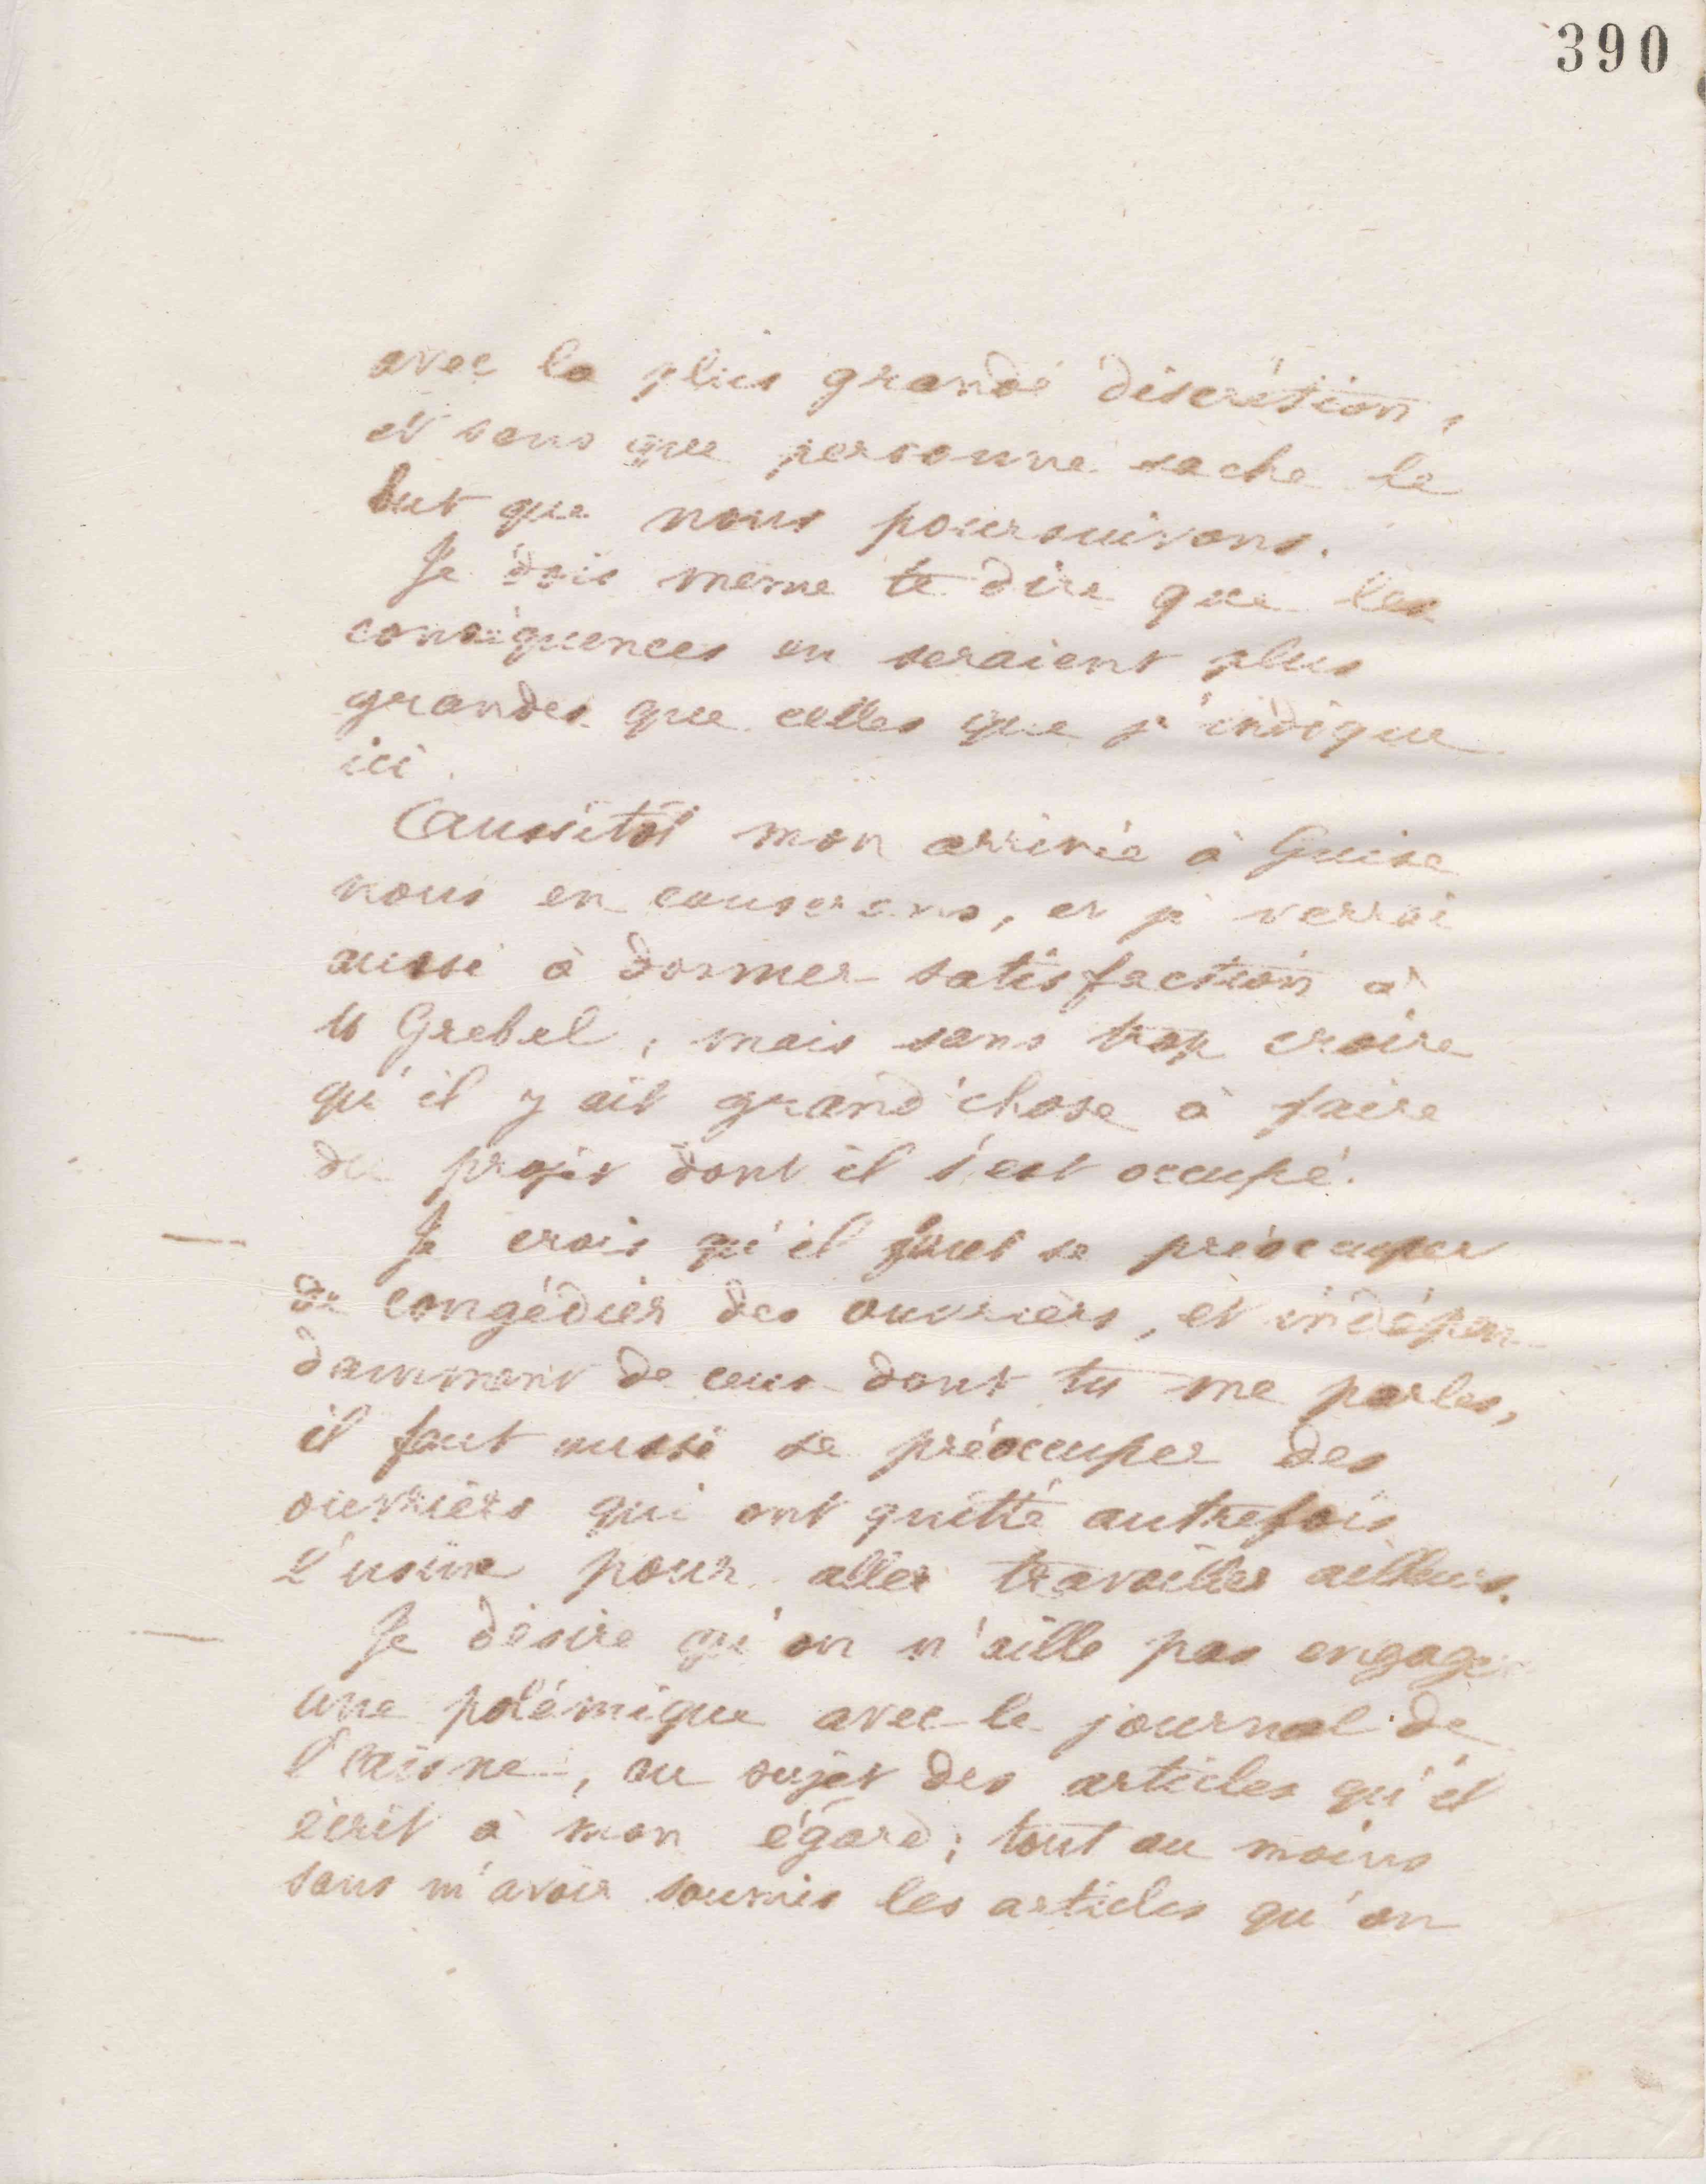 390
avec la plus grande discrétion,
et sans que personne sache le
but que nous poursuivons.
Je dois même te dire que les
conséquences en seraient plus
grandes que celles que j'indique
ici.
Aussitôt mon arrivée à Guise
nous en causerons, et je verrai
aussi à donner satisfaction à
M Grebel, mais sans trop croire
qu'il y ait grand'chose à faire
du projet dont il s'est occupé.
Je crois qu'il faut se préoccuper
de congédier des ouvriers, et indépen-
damment de ceux dont tu me parles,
il faut aussi se préoccuper des
ouvriers qui ont quitté autrefois
l'usine pour aller travailler ailleurs.
Je désire qu'on n'aille pas engager
une polémique avec le journal de
l'aisne, au sujet des articles qu'il
écrit à mon égard; tout au moins
sans m'avoir soumis les articles qu'on